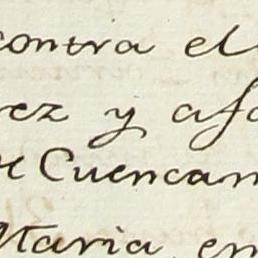 contra el
rez y afo
de Cuencam
Maria, en